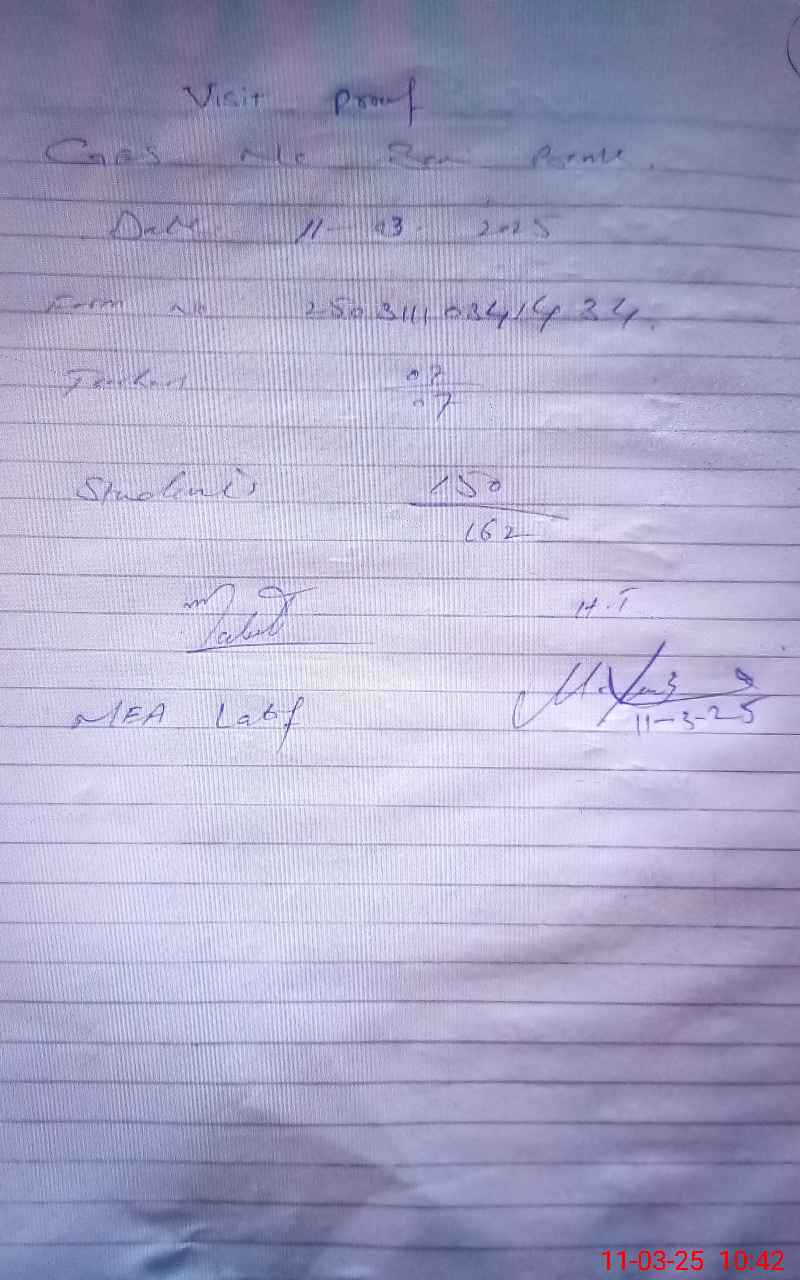 Visit Proof
Date 11-03-2025
Form No 25031110341434
Teachers 07
07
Students 150
162
H.T
MEA Latif
11-3-25
11-03-25 10:42